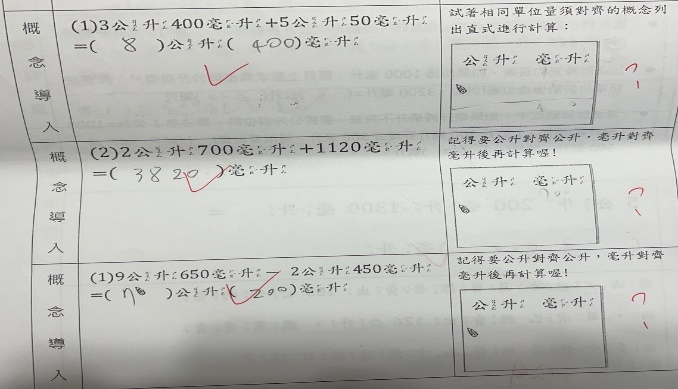 概念導入
(1)3公升400毫升+5公升50毫升
=( 8 )公升( 400)毫升
試著相同單位量須對齊的概念列
出直式進行計算：
公升 毫升
?
概念導入
(2)2公升700毫升+1120毫升
=( 3820 )毫升
記得要公升對齊公升，毫升對齊
毫升後再計算喔！
公升 毫升
?
概念導入
(1)9公升650毫升－ 2公升450毫升
=( )公升( 200)毫升
記得要公升對齊公升，毫升對齊
毫升後再計算喔！
公升 毫升
?